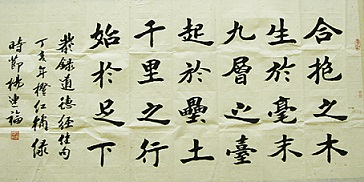 合抱之木
生於毫末
九層之臺
起於壘土
千里之行
始於足下
恭錄道德經佳句
丁亥年橙紅橘綠
時節楊建福